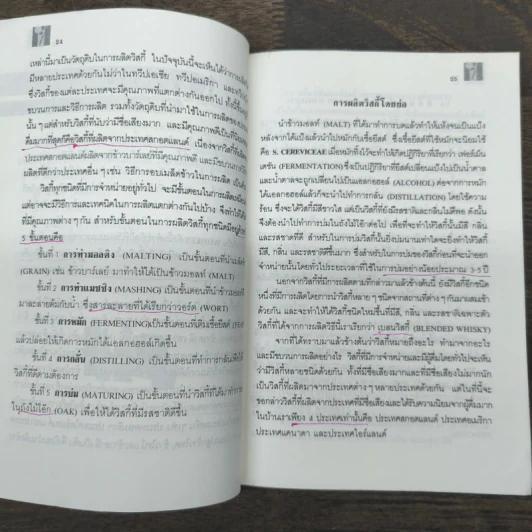 54
เหล่านี้มาเป็นวัตถุดิบในการผลิตวิสกี้ ในปัจจุบันนี้จะเห็นได้ว่าการ
มีหลายประเทศด้วยกันไม่ว่าในทวีปเอเชีย ทวีปอเมริกา
ซึ่งวิสกี้ของแต่ละประเทศจะมีคุณภาพที่แตกต่างกันออกไป ทั้งนี้ขึ้น
ขบวนการและวิธีการผลิต รวมทั้งวัตถุดิบที่นำมาใช้ในการผลิตของ
นั้น ๆ แต่สำหรับวิสกี้ที่นับว่ามีชื่อเสียงมาก และมีคุณภาพเป็นที่นิยม
ดื่มมากที่สุดก็คือวิสกี้ที่ผลิตจากประเทศสกอตแลนด์ เนื่องจากวิสกี้
ประเทศสกอตแลนด์ผลิตจากข้าวบาร์เลย์ที่มีคุณภาพดี และมีขบวนการ
ผลิตที่ดีกว่าประเทศอื่น ๆ เช่น วิธีการอบเมล็ดข้าวในการผลิต เป็นต้น
วิสกี้ทุกชนิดที่มีการจำหน่ายอยู่ทั่วไป จะมีขั้นตอนในการผลิต
แต่อาจจะมีวิธีการและเทคนิคในการผลิตแตกต่างกันไปบ้าง จึงทำให้
ที่มีคุณภาพต่าง ๆ กัน สำหรับขั้นตอนในการผลิตวิสกี้ทุกชนิดมีอยู่
5 ขั้นตอนคือ
ขั้นที่ 1 การทำมอลติง (MALTING) เป็นขั้นตอนที่นำเมล็ด
(GRAIN) เช่น ข้าวบาร์เลย์ มาทำให้ได้เป็นข้าวมอลท์ (MALT)
ขั้นที่ 2 การทำแมชชิ่ง (MASHING) เป็นขั้นตอนที่นำข้าวมอลท์
มาละลายต้มกับน้ำ ซึ่งสารละลายที่ได้เรียกว่าวอร์ต (WORT)
ขั้นที่ 3 การหมัก (FERMENTING) เป็นขั้นตอนที่เติมเชื้อยีสต์
แล้วปล่อยให้เกิดการหมักได้แอลกอฮอล์เกิดขึ้น
ขั้นที่ 4 การกลั่น (DISTILLING) เป็นขั้นตอนที่ทำการกลั่นเพื่อให้
วิสกี้ที่มีดีกรีตามต้องการ
ขั้นที่ 5 การบ่ม (MATURING) เป็นขั้นตอนที่นำวิสกี้ที่ได้มาทำการ
ในถังไม้โอ๊ก (OAK) เพื่อให้ได้วิสกี้ที่มีรสชาติดีขึ้น
55
การผลิตวิสกี้โดยย่อ
นำข้าวมอลท์ (MALT) ที่ได้มาทำการบดแล้วทำให้แห้งจนเป็นแป้ง
หลังจากได้แป้งแล้วนำไปหมักกับเชื้อยีสต์ ซึ่งเชื้อยีสต์ที่ใช้หมักจะนิยมใช้
คือ S. CEREVICEAE เมื่อหมักทิ้งไว้จะทำให้เกิดปฏิกิริยาที่เรียกว่า เฟอร์เม็น
เตชัน (FERMENTATION) ซึ่งเป็นปฏิกิริยาที่ยีสต์เปลี่ยนแป้งไปเป็นน้ำตาล
และน้ำตาลจะถูกเปลี่ยนไปเป็นแอลกอฮอล์ (ALCOHOL) ต่อจากการหมัก
ได้แอลกอฮอล์แล้วก็จะนำไปทำการกลั่น (DISTILLATION) โดยใช้ความ
ร้อน ซึ่งจะได้วิสกี้ที่มีสีขาวใส แต่เป็นวิสกี้ที่ยังมีรสชาติและกลิ่นไม่ดีพอ ดังนั้น
จึงต้องนำไปทำการบ่มในถังไม้โอ๊กต่อไป เพื่อที่จะทำให้วิสกี้นั้นมีสี กลิ่น
และรสชาติที่ดี สำหรับการบ่มวิสกี้นั้นยิ่งบ่มนานเท่าใดจะยิ่งทำให้วิสกี้
มีสี, กลิ่น และรสชาติดีขึ้นมาก ซึ่งสำหรับในการบ่มวิสกี้ก่อนที่จะนำออก
จำหน่ายนั้นโดยทั่วไประยะเวลาที่ใช้ในการบ่มอย่างน้อยประมาณ 3-5 ปี
นอกจากวิสกี้ที่มีการผลิตตามที่กล่าวมาแล้วข้างต้นนี้ ยังมีวิสกี้อีกชนิด
หนึ่งที่มีการผลิตโดยการนำวิสกี้หลาย ๆ ชนิดจากสถานที่ต่าง ๆ กันมาผสมเข้า
ด้วยกัน และจะทำให้ได้วิสกี้ชนิดใหม่ขึ้นที่มีสี, กลิ่น และรสชาติเฉพาะตัว
วิสกี้ที่ได้จากการผลิตวิธีนี้เราเรียกว่า เบลนวิสกี้ (BLENDED WHISKY)
จากที่ได้ทราบมาแล้วข้างต้นว่าวิสกี้หมายถึงอะไร ทำมาจากอะไร
และมีขบวนการผลิตอย่างไร วิสกี้ที่มีการจำหน่ายและมีผู้ดื่มโดยทั่วไปจะเห็น
ว่ามีวิสกี้หลายชนิดด้วยกัน ทั้งที่มีชื่อเสียงมากและที่มีชื่อเสียงไม่มากนัก
เป็นวิสกี้ที่ผลิตมาจากประเทศต่าง ๆ หลายประเทศด้วยกัน แต่ในที่นี้จะ
ขอกล่าว วิสกี้ที่ผลิตจากประเทศที่มีชื่อเสียงและได้รับความนิยมจากผู้ดื่มมาก
ในบ้านเราเพียง 4 ประเทศเท่านั้นคือ ประเทศสกอตแลนด์ ประเทศอเมริกา
ประเทศแคนาดา และประเทศไอร์แลนด์